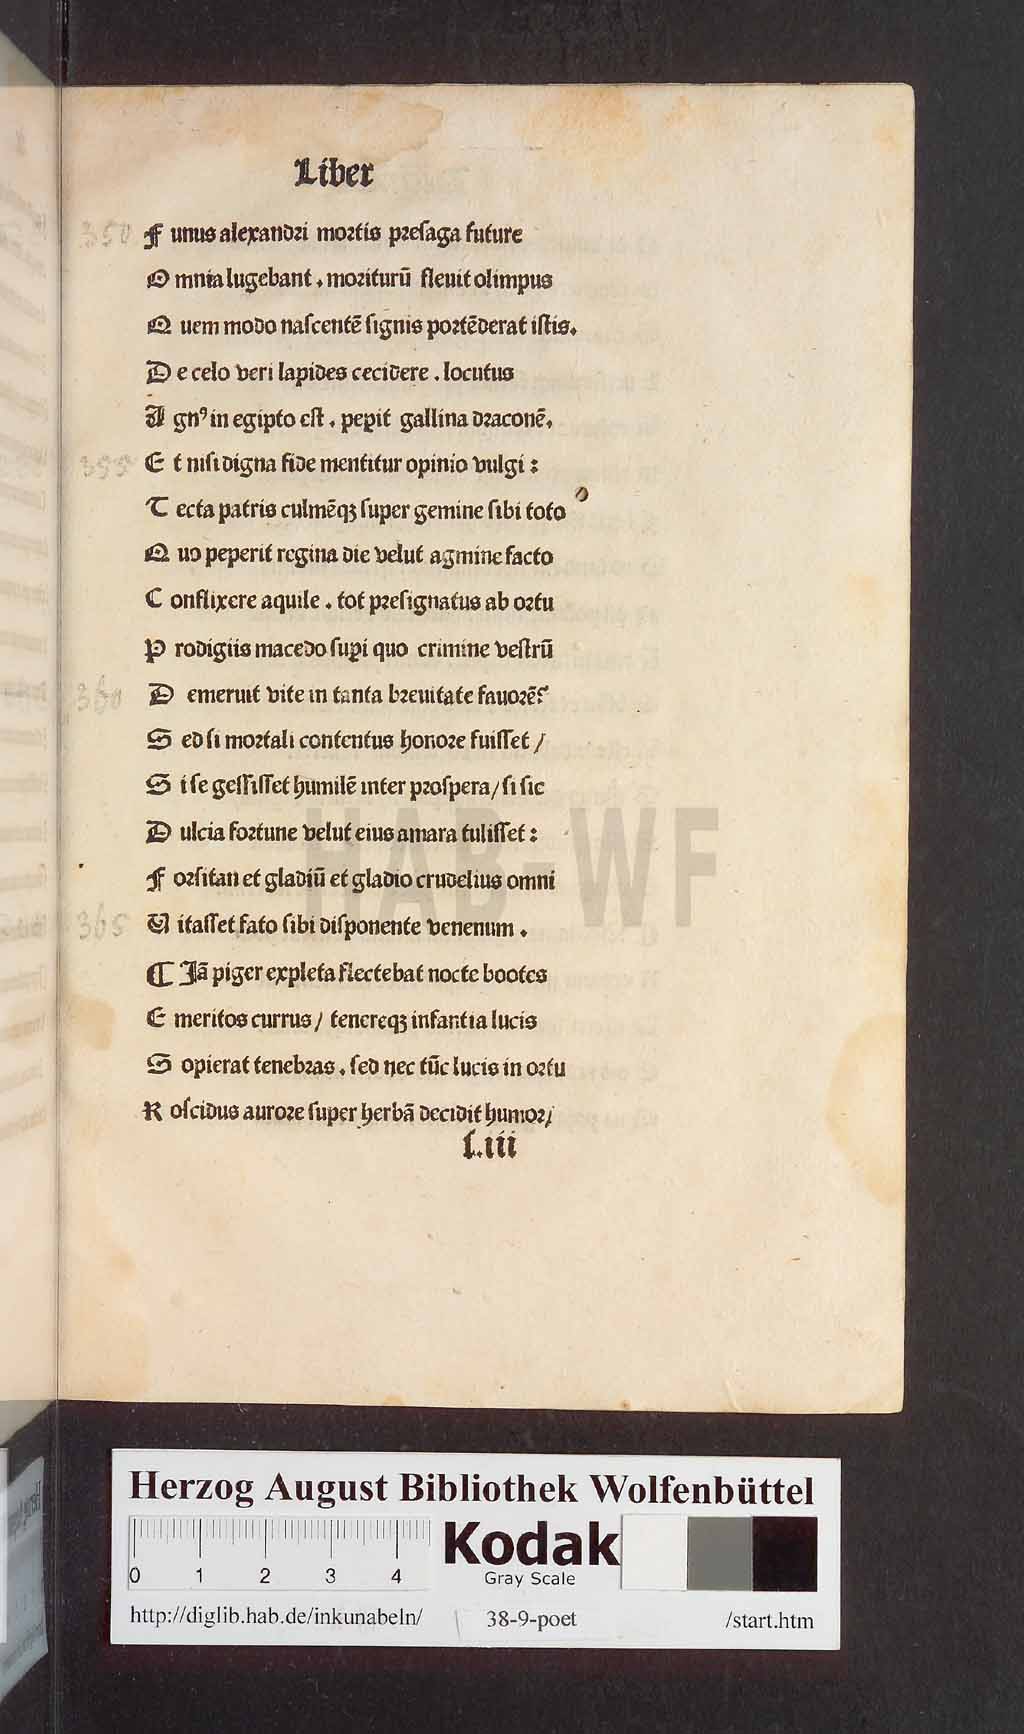 Liber
350 F unus alexandri mortis preſaga future
O mnia lugebant . moriturū fleuit olimpus
Q uem modo naſcentē ſignis portēderat iſtis.
D e celo veri lapides cecidere . locutus
A gnꝰ in egipto eſt . peꝑit gallina draconē.
355 E t niſi digna fide mentitur opinio vulgi :
T ecta patris culmēqꝫ ſuper gemine ſibi toto
Q uo peperit regina die velut agmine facto
C onflixere aquile . tot preſignatus ab ortu
P rodigiis macedo ſuꝑi quo crimine veſtrū
360 D emeruit vite in tanta breuitate fauorē?
S ed ſi mortali contentus honore fuiſſet /
S i ſe geſſiſſet humilē inter proſpera / ſi ſic
D ulcia fortune velut eius amara tuliſſet :
F orſitan et gladiū et gladio crudelius omni
365 V itaſſet fato ſibi diſponente venenum .
¶ Jā piger expleta flectebat nocte bootes
E meritos currus / tenereqꝫ infantia lucis
S opierat tenebras . ſed nec tūc lucis in ortu
R oſcidus aurore ſuper herbā decidit humor /
ſ.iii
HAB-WF
Herzog August Bibliothek Wolfenbüttel
0 1 2 3 4
Kodak
Gray Scale
http://diglib.hab.de/inkunabeln/ 38-9-poet /start.htm